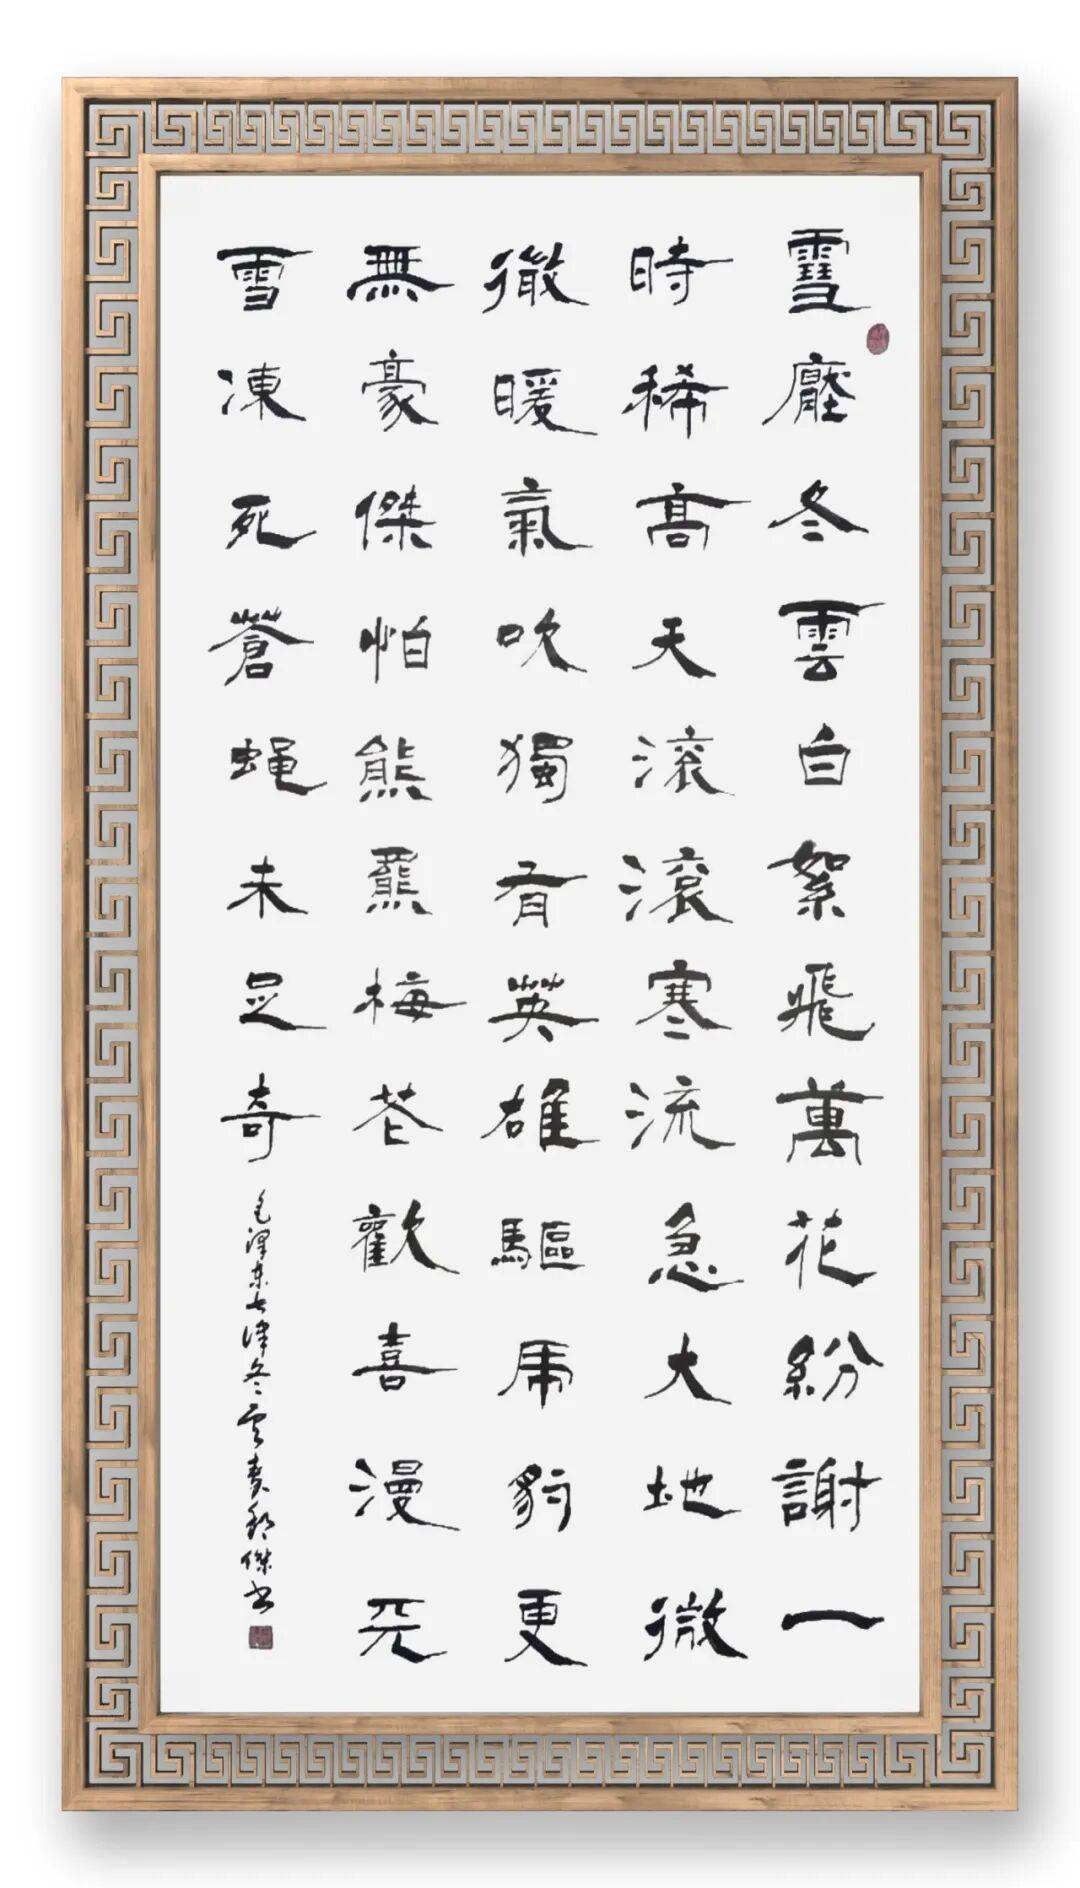 雪壓冬雲白絮飛萬花紛謝一
時稀高天滚滾寒流急大地微
微暖氣吹獨有英雄驅虎豹更
無豪傑怕熊羆梅花歡喜漫天
雪凍死蒼蝇未足奇
毛澤东七律冬雲 傑书